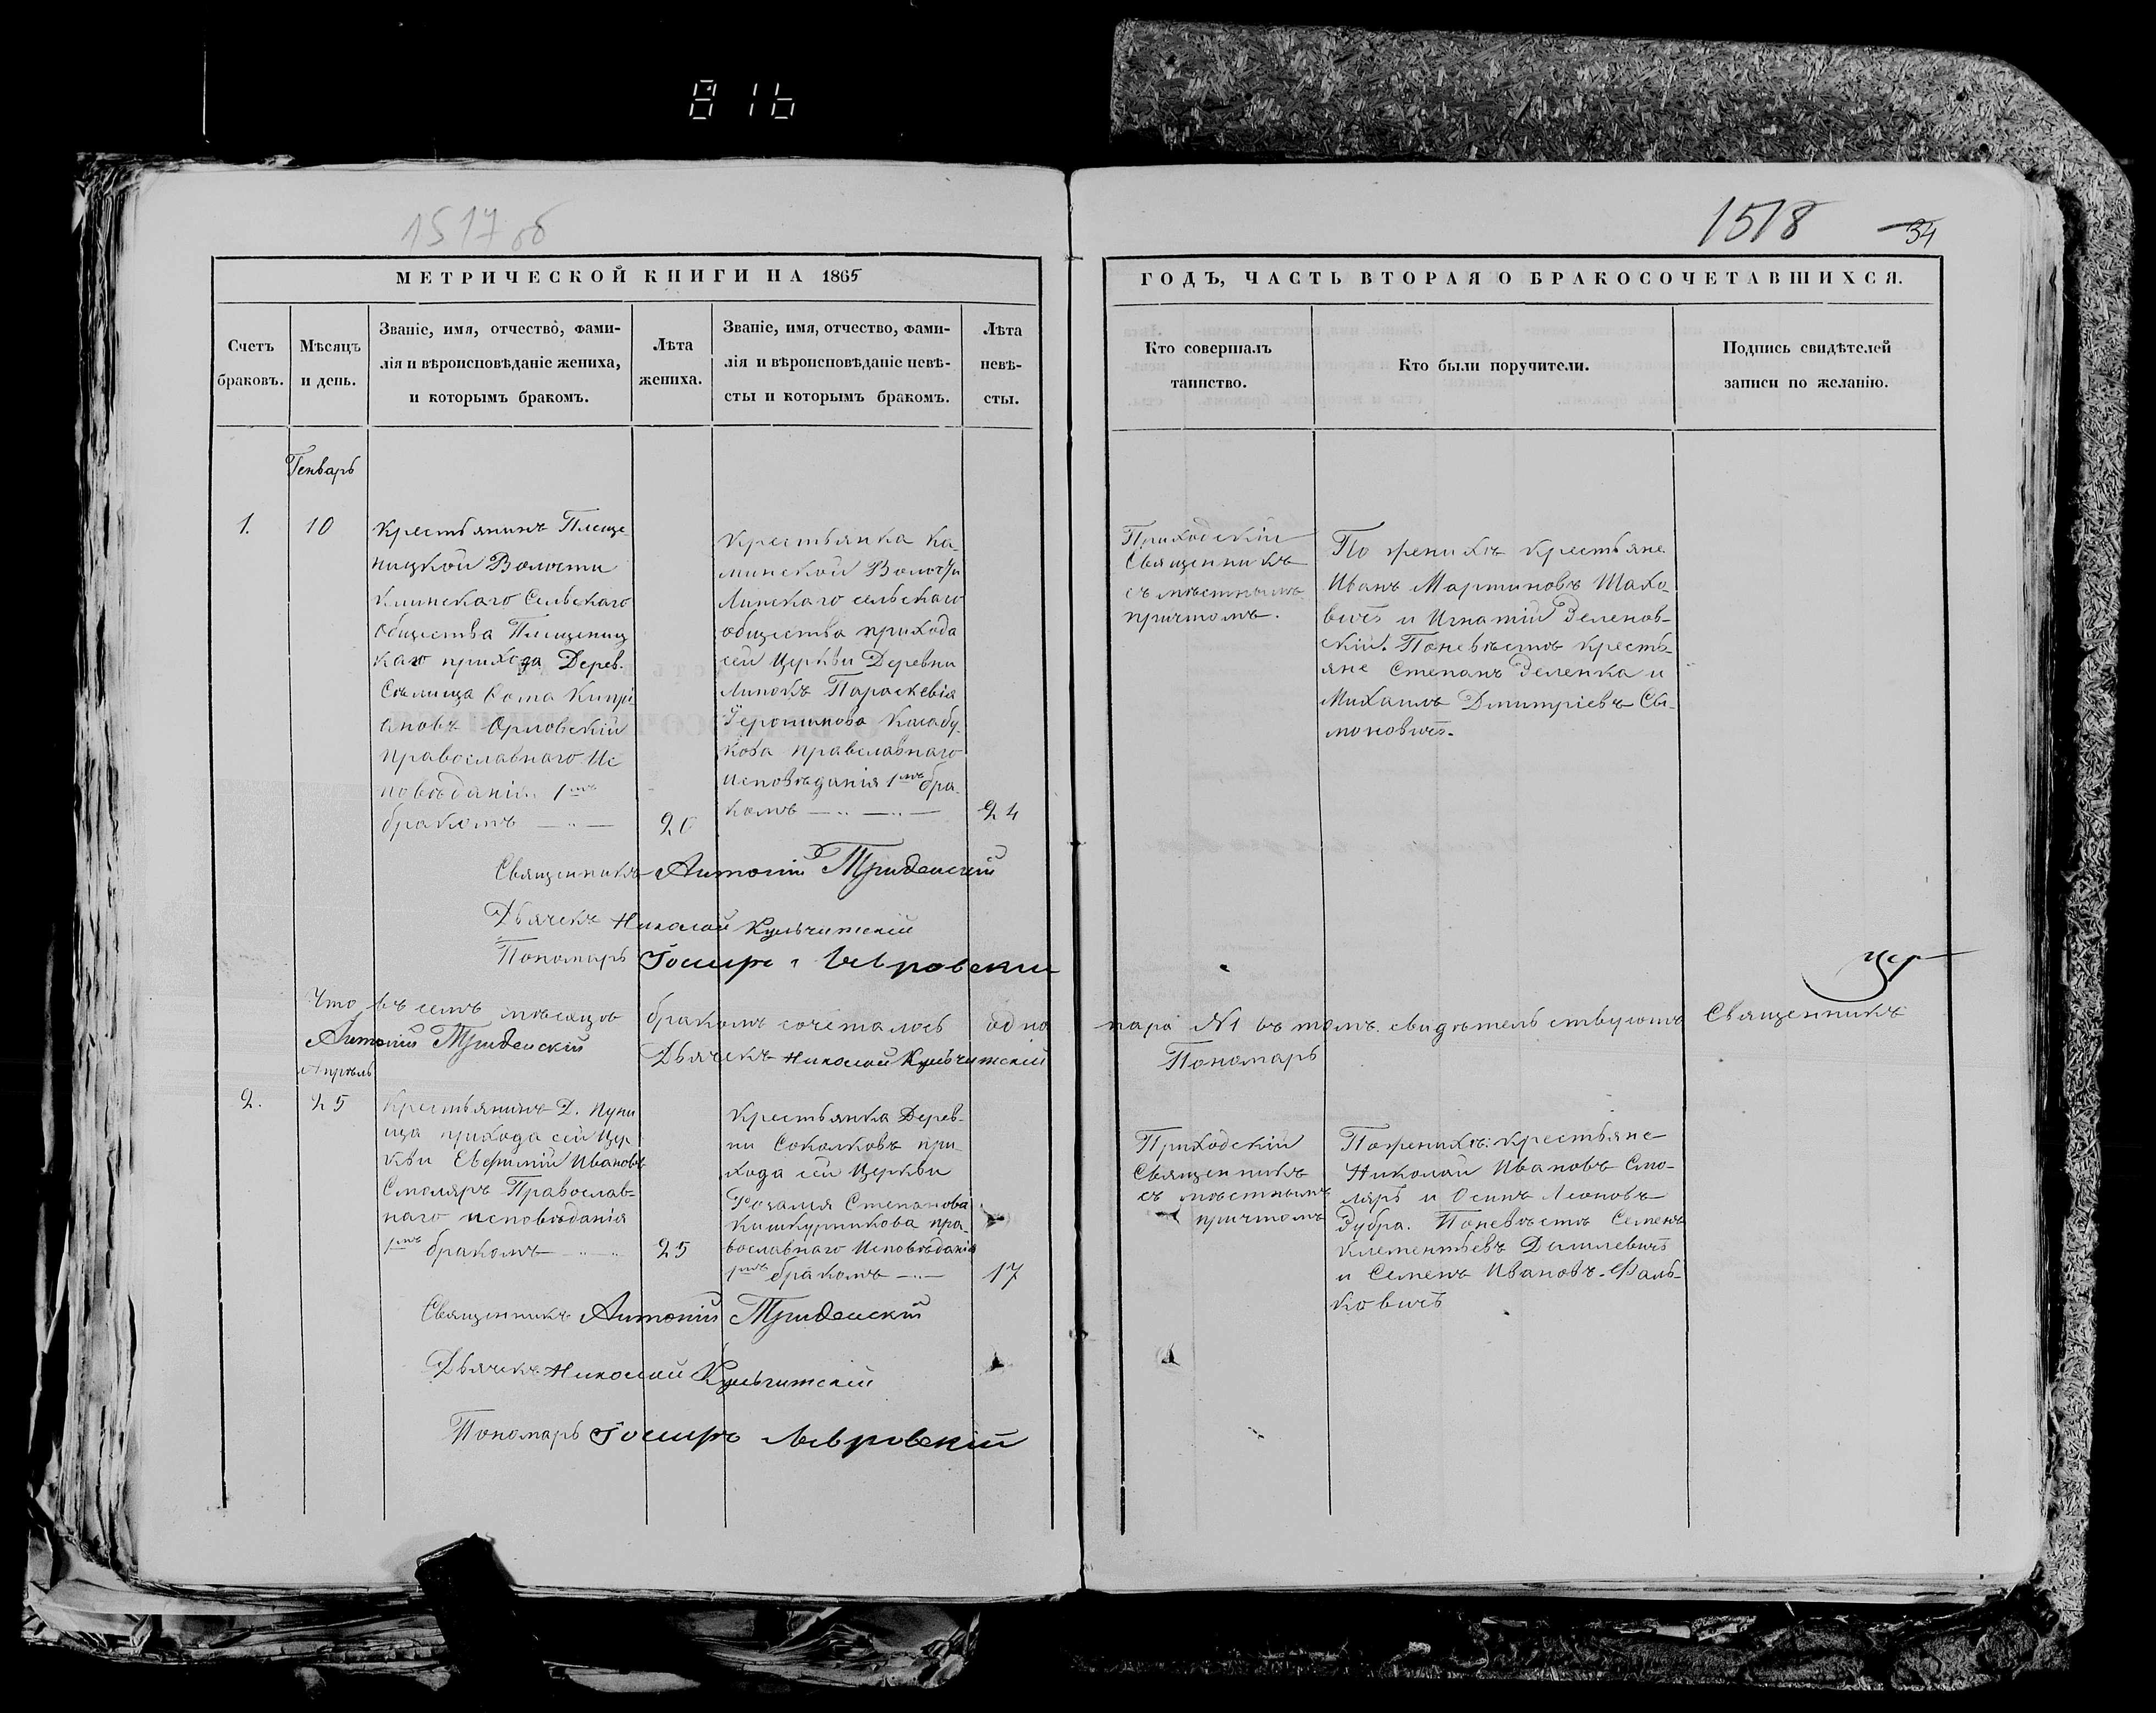 816
1517 об
1518
34
МЕТРИЧЕСКОЙ КНИГИ НА 1865
Счетъ
браковъ.
Мѣсяцъ
и день.
Званіе, имя, отчество, фами-
лія и вѣроисповѣданіе жениха,
и которымъ бракомъ.
Лѣта
жениха.
Званіе, имя, отчество, фами-
лія и вѣроисповѣданіе невѣ-
сты и которымъ бракомъ.
Лѣта
невѣ-
сты.
ГОДЪ, ЧАСТЬ ВТОРАЯ О БРАКОСОЧЕТАВШИХСЯ.
Кто совершалъ
таинство.
Кто были поручители.
Подпись свидѣтелей
записи по желанію.
Генварь
1.
10
Крестьянинъ Плеще-
ницкой Волости
Клинскаго Сельскаго
Общества Плещениц
каго прихода Дерев.
Селища Ѳома Кипрі
ановъ Орловскій
Православнаго Ис
повѣданія 1мъ
бракомъ
20
Крестьянка Ка-
минской Волости
Липскаго сельскаго
общества прихода
сей Церкви Деревни
Липокъ Параскевія
Іеронимова
кова православнаго
исповѣданія 1мъ бра-
комъ
24
Приходскій
Священникъ
съ мѣстнымъ
причтомъ.
По женихѣ крестьяне
Иванъ Мартиновъ Шахо-
вичъ и Игнатій Зеленов-
скій. По невѣстѣ кресть-
яне Степанъ Зеленка и
Михаилъ Дмитріевъ Сы-
моновичъ.
Священникъ Антоній
Дьячекъ Николай Кульчитскій
Пономарь
Что въ семъ мѣсяцѣ бракомъ сочеталось одна пара №1 въ томъ свидѣтельствуютъ Священникъ
Антоній Дьячекъ Николай Кульчитскій Пономарь
Апрѣль
2.
25
Крестьянинъ Д. Пуни
ща прихода сей Цер
кви Евфимій Ивановъ
Смоляръ Православ-
наго исповѣданія
1мъ бракомъ
25
Крестьянка Дерев-
ни Соколковъ при-
хода сей Церкви
Розалія Степанова
Кишкурникова пра-
вославнаго Исповѣданія
1мъ бракомъ
17
Приходскій
Священникъ
съ мѣстнымъ
причтомъ
По женихѣ: крестьяне
Николай Ивановъ Смо-
ляръ и Осипъ Леоновъ
Дубра. По невѣстѣ Семенъ
Клементьевъ
и Семенъ Ивановъ Фаль-
ковичъ
Священникъ Антоній
Дьячекъ Николай Кульчитскій
Пономарь